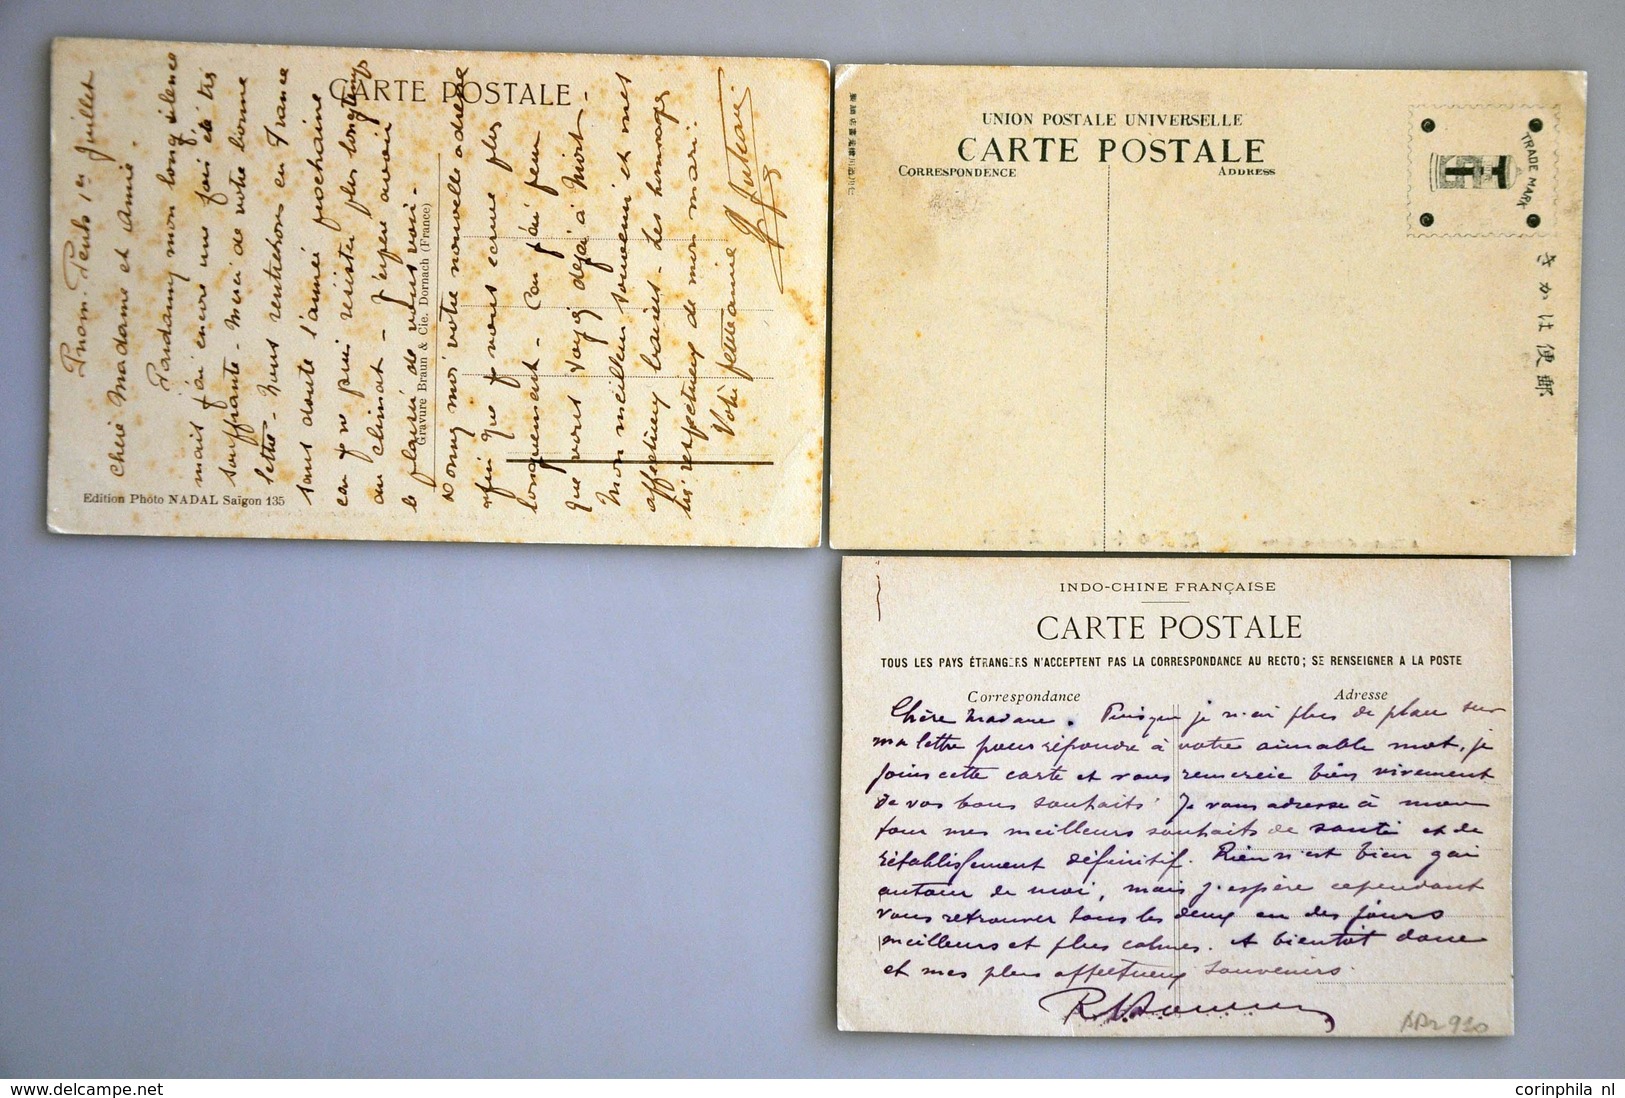 CARTE POSTALE
Pnom-Penh 1er Juillet
Chère Madame et Amie.
Pardonnez mon long silence
mais j'ai encore une fois été très
souffrante - Merci de votre bonne
lettre - Nous rentrerons en France
sans doute l'année prochaine
car je ne puis résister plus longtemps
au climat - J'espère avoir
le plaisir de vous voir -
Donnez moi votre nouvelle adresse
afin que je vous écrive plus
longuement - Car j'ai peur
que vous soyez déjà à Niort -
Mon meilleur souvenir et mes
affectueux baisers - Les hommages
très respectueux de mon mari.
Votre
Gravure Braun & Cie. Dornach (France)
Edition Photo NADAL Saïgon 135
UNION POSTALE UNIVERSELLE
CARTE POSTALE
CORRESPONDENCE
ADDRESS
TRADE MARK
きかは便郵
INDO-CHINE FRANÇAISE
CARTE POSTALE
TOUS LES PAYS ÉTRANGERS N'ACCEPTENT PAS LA CORRESPONDANCE AU RECTO; SE RENSEIGNER A LA POSTE
Correspondance
Adresse
Chère Madame. Puisque je n'ai plus de place sur
ma lettre pour répondre à votre aimable mot, je
joins cette carte et vous remercie bien vivement
de vos bons souhaits. Je vous adresse à mon
tour mes meilleurs souhaits de santé et de
rétablissement définitif. Rien n'est bien gai
autour de moi, mais j'espère cependant
vous retrouver tous les deux en des jours
meilleurs et plus calmes. A bientôt donc
et mes plus affectueux souvenirs.
corinphila nl